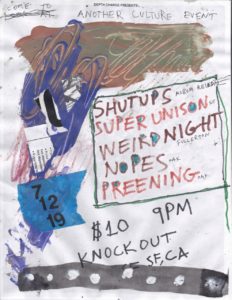 DEPTH CHARGE PRESENTS:
COME TO
ANOTHER CULTURE EVENT
SHUTUPS
SUPER UNISON SF
WEIRD NIGHT
FULLERTON
NOPES OAK
PREENING OAK
7
12
19
$10 9PM
KNOCKOUT
SF, CA